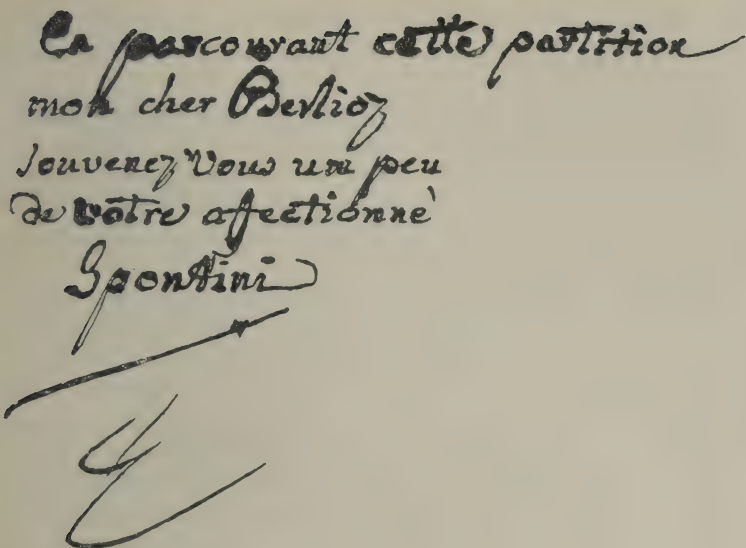 En parcourant cette partition
mon cher Berlioz
souvenez vous un peu
de votre affectionné
Spontini